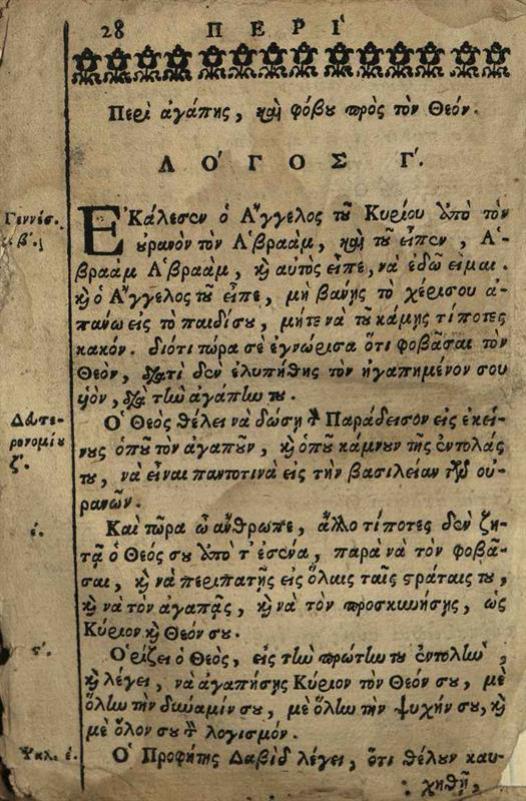 28 ΠΕΡῚ
Περὶ ἀγάπης, καὶ φόβου πρὸς τὸν Θεόν.
ΛΌΓΟΣ Γ'.
Γεννέσ. κβ'.
Ε'Κάλεσεν ὁ Α῎γγελος τοῦ Κυρίου ἀπὸ τὸν
οὐρανὸν τὸν Α'βραὰμ, καὶ τοῦ εἶπεν, Α'-
βραὰμ Α'βραὰμ, καὶ αὐτὸς εἶπε, νὰ ἐδῶ εἶμαι.
καὶ ὁ Α῎γγελος τοῦ εἶπε, μὴ βανῃς τὸ χέρισου ἀ-
πανω εἰς τὸ παιδίσου, μήτε νὰ τοῦ κάμῃς τίποτες
κακόν. διότι τώρα σὲ ἐγνώρισα ὅτι φοβᾶσαι τὸν
Θεὸν, διατὶ δὲν ἐλυπήθης τὸν ἠγαπημένον σου
υἱὸν, διὰ τὴν ἀγάπην του.
Δευτερονομίου ζ'.
Ο῾ Θεὸς θέλει νὰ δώσῃ τὸν Παράδεισον εἰς ἐκεί-
νους ὁποῦ τὸν ἀγαποῦν, καὶ ὁποῦ κάμνουν τῆς ἐντολάς
του, νὰ εἶναι παντοτινὰ εἰς τὴν βασιλείαν τῶν οὐ-
ρανῶν.
ι'.
Καὶ τώρα ὦ ἄνθρωπε, ἄλλο τίποτες δὲν ζη-
τᾷ ὁ Θεός σου ἀπὸ τ' ἐσένα, παρὰ νὰ τὸν φοβᾶ-
σαι, καὶ νὰ περιπατῇς εἰς ὅλαις ταῖς στράταις του,
καὶ νὰ τὸν ἀγαπᾷς, καὶ νὰ τὸν προσκυνήσῃς, ὡς
Κύριον καὶ Θεόν σου.
ϛ'.
Ο῾ρίζει ὁ Θεὸς, εἰς τὴν πρώτην του ἐντολὴν,
καὶ λέγει, νὰ ἀγαπήσῃς Κύριον τὸν Θεόν σου, μὲ
ὅλην τὴν δύναμίν σου, μὲ ὅλην τὴν ψυχήν σου, καὶ
μὲ ὅλον σου τὸν λογισμόν.
Ψαλ. έ.
Ο῾ Προφήτης Δαβὶδ λέγει, ὅτι θέλουν καυ-
χηθῇ,